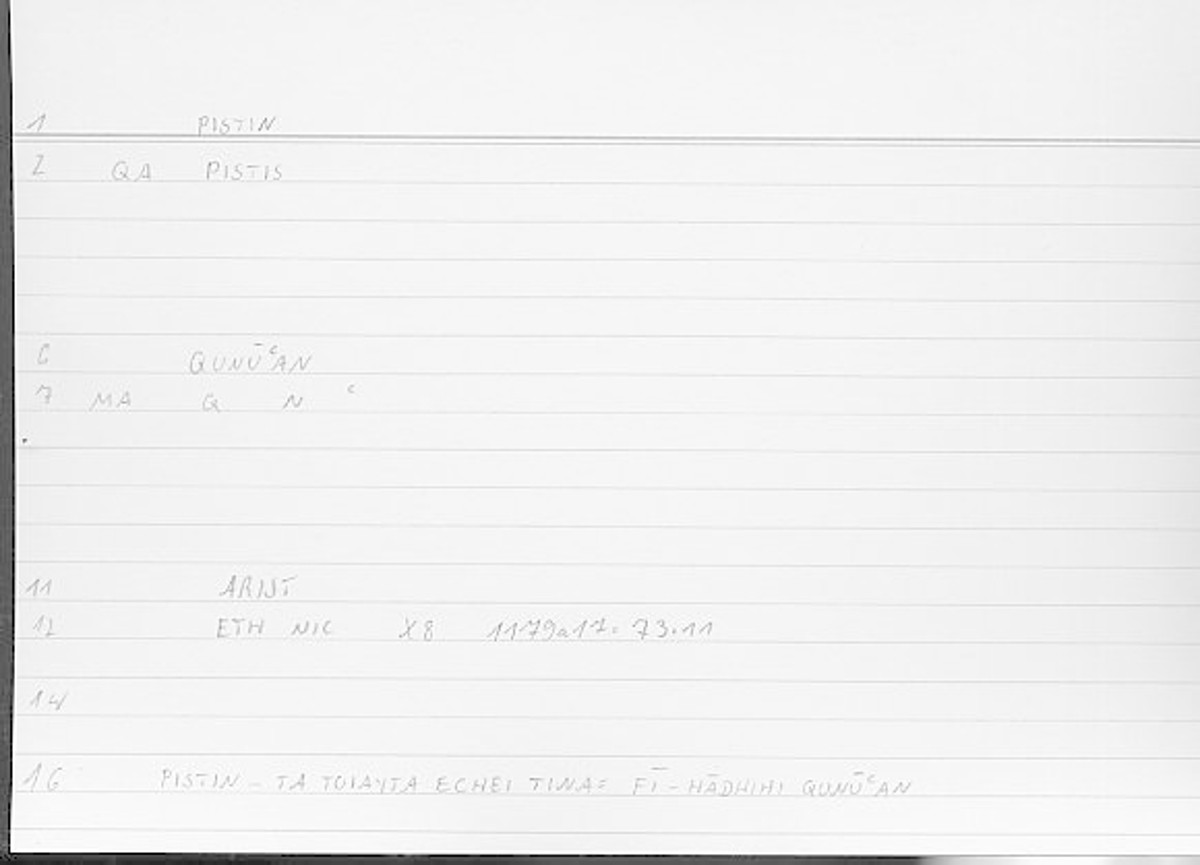 1 PISTIN
2 QA PISTIS
6 QUNŪʿAN
7 MA Q N ʿ
11 ARIST
12 ETH NIC X8 1179a17= 73.11
14
16 PISTIN - TA TOIAYTA ECHEI TINA= FĪ - HĀDHIHI QUNŪʿAN